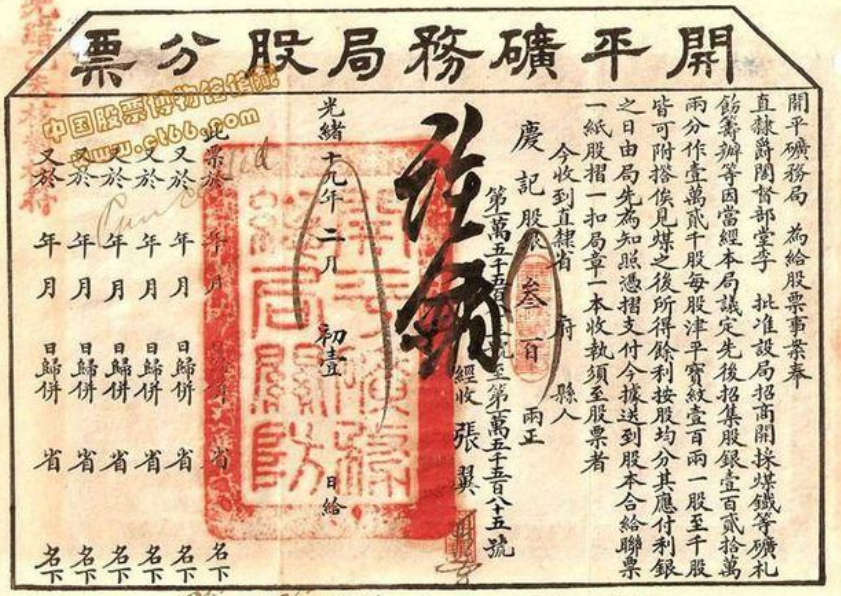 開平礦務局股分票
開平礦務局 為給股票事案奉
直隸爵閣督部堂李 批准設局招商開採煤鐵等礦札
飭籌辦等因當經本局議定先後招集股銀壹百貳拾萬
兩分作壹萬貳千股每股津平寶紋壹百兩一股至千股
皆可附搭俟見煤之後所得餘利按股均分其應付利銀
之日由局先為知照憑摺支付今據送到股本合給聯票
一紙股摺一扣局章一本收執須至股票者
今收到直隸省 府 縣人
慶記股銀叁百兩正
第一萬五千五百 號至第一萬五千五百八十五號
經收 張翼
註銷
光緒十九年二月初壹日給
開平礦務總局關防
此票於 年 月 日歸併 省 名下
又於 年 月 日歸併 省 名下
又於 年 月 日歸併 省 名下
又於 年 月 日歸併 省 名下
又於 年 月 日歸併 省 名下
又於 年 月 日歸併 省 名下
中国股票博物馆馆藏
www.ct66.com